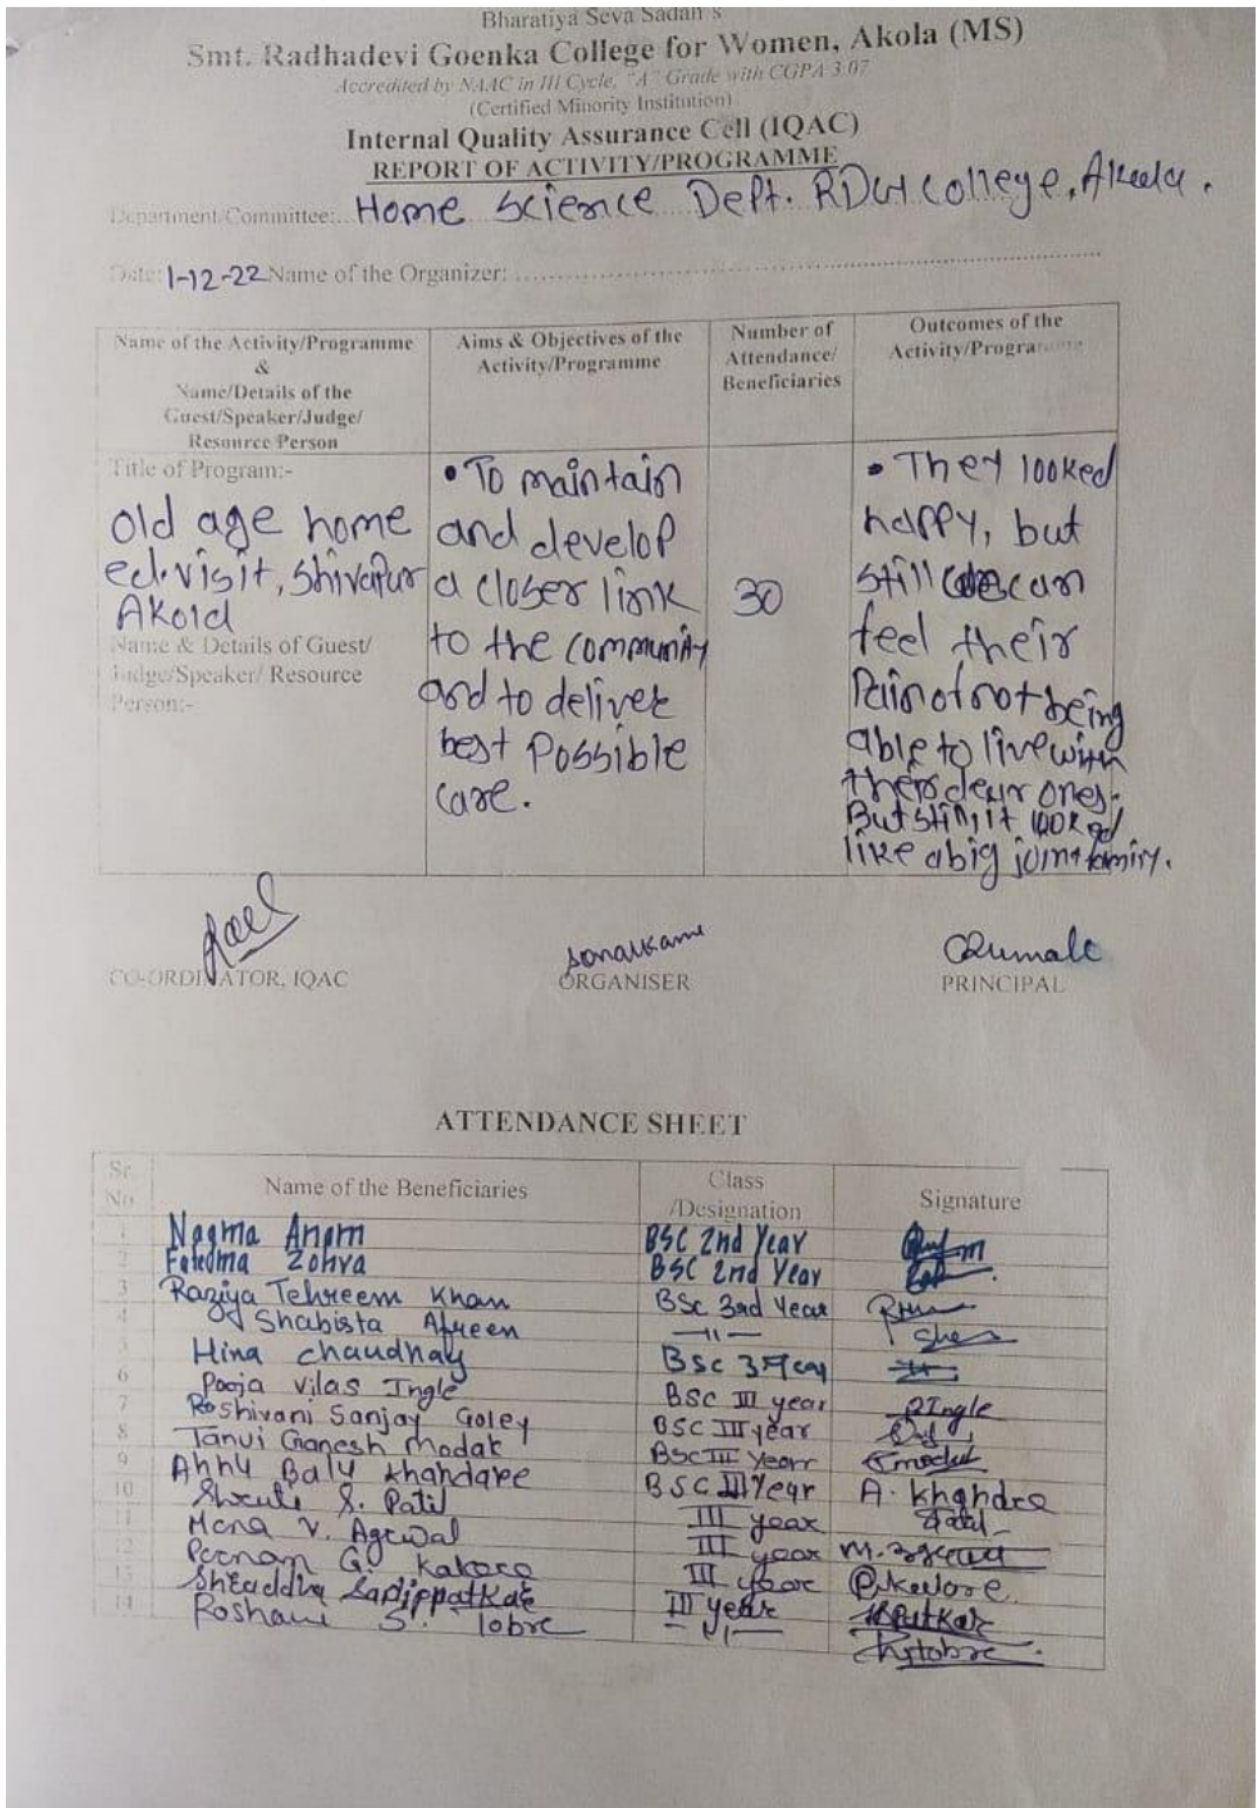 Bharatiya Seva Sadan's
Smt. Radhadevi Goenka College for Women, Akola (MS)
Accredited by NAAC in III Cycle, "A" Grade with CGPA 3.07
(Certified Minority Institution)
Internal Quality Assurance Cell (IQAC)
REPORT OF ACTIVITY/PROGRAMME
Department/Committee:.. Home Science Dept. RDGH College, Akola.
Date: 1-12-22 Name of the Organizer: ..........
Name of the Activity/Programme
&
Name/Details of the
Guest/Speaker/Judge/
Resource Person
Aims & Objectives of the
Activity/Programme
Number of
Attendance/
Beneficiaries
Outcomes of the
Activity/Programme
Title of Program:-
Old age home
ed. visit, Shivapur
Akola
Name & Details of Guest/
Judge/Speaker/ Resource
Person:-
• To maintain
and develop
a closer link
to the community
and to deliver
best possible
care.
30
• They looked
happy, but
still can
feel their
Pain of not being
able to live with
their dear ones.
But still, it looked
like a big joint family.
CO-ORDINATOR, IQAC
sonalkame
ORGANISER
PRINCIPAL
ATTENDANCE SHEET
Sr. No
Name of the Beneficiaries
Class
/Designation
Signature
1 Nagma Anam BSC 2nd Year
2 Fateema Zohra BSC 2nd Year
3 Raziya Tehreem Khan BSc 3rd Year
4 Shabista Afreen —11—
5 Hina chaudhay BSc 3 Year
6 Pooja Vilas Ingle BSC III year PIngle
7 Roshivani Sanjay Goley BSC III year
8 Tanvi Ganesh Modak BSc III Year
9 Annu Balu Khandare BSC III Year A. Khandre
10 S. Patil III year Patil
11 Mona V. Agrwal III year
12 Poonam G. Kakore III year
13 Shraddha III year
14 Roshani S. Tobre —11—